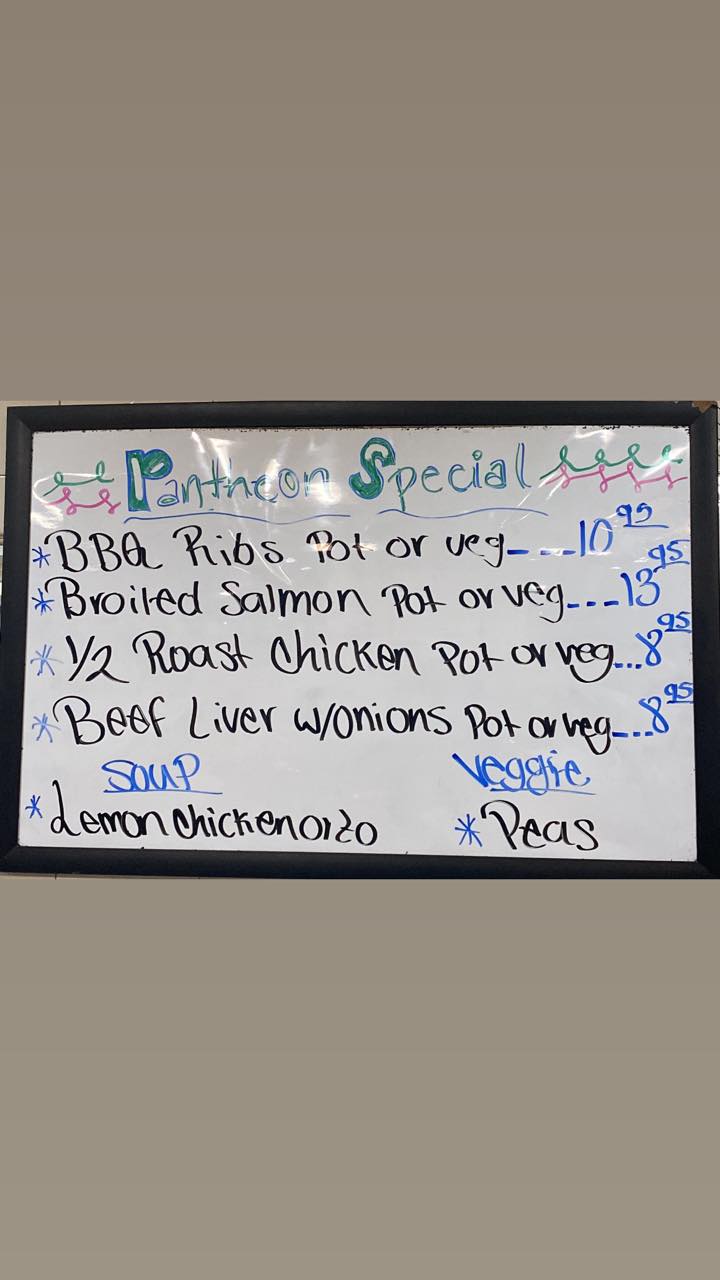 Pantheon Special
*BBQ Ribs Pot or veg_ _ _10 95
*Broiled Salmon Pot or veg_ _ _13 95
*1/2 Roast Chicken Pot or veg...8 95
*Beef Liver w/onions Pot or veg...8 95
Soup Veggie
*Lemon chicken orzo *Peas